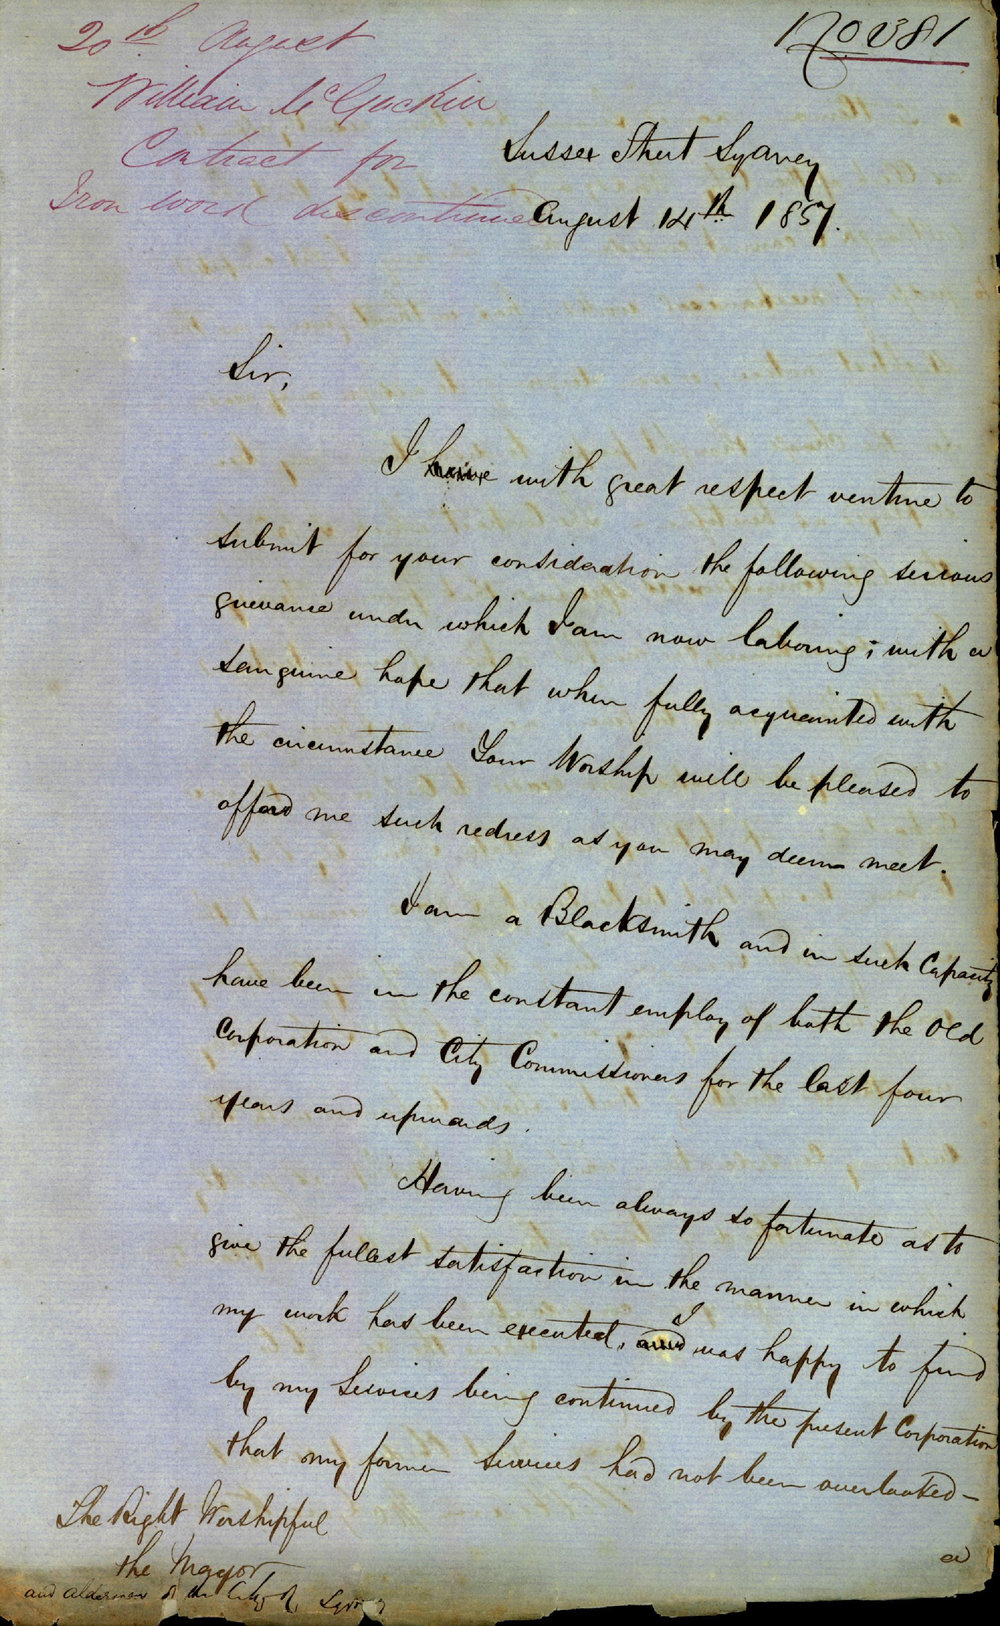 20th August
William McGuckin
Contract for
Iron work discontinued
No 381
Sussex Street Sydney
August 14th 1857.
Sir,
I have with great respect venture to
submit for your consideration the following serious
grievance under which I am now laboring; with a
sanguine hope that when fully acquainted with
the circumstance Your Worship will be pleased to
afford me such redress as you may deem meet.
I am a Blacksmith and in such Capacity
have been in the constant employ of both the Old
Corporation and City Commissioners for the last four
years and upwards.
Having been always so fortunate as to
give the fullest satisfaction in the manner in which
my work has been executed, and I was happy to find
by my Services being continued by the present Corporation
that my former Services had not been overlooked—
a
The Right Worshipful
the Mayor
and aldermen of the City of Sydney